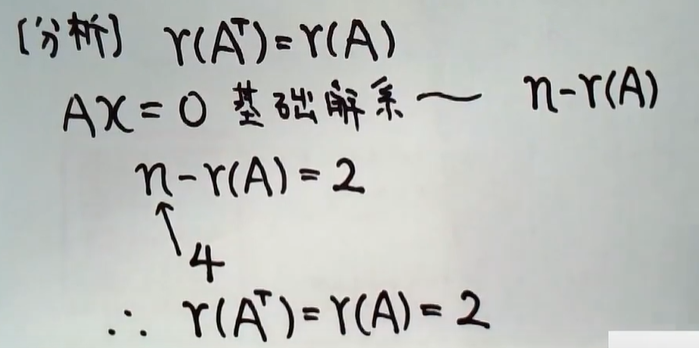 [分析] r(Aᵀ)=r(A)
AX=0 基础解系～ n-r(A)
n-r(A)=2
4
∴ r(Aᵀ)=r(A)=2